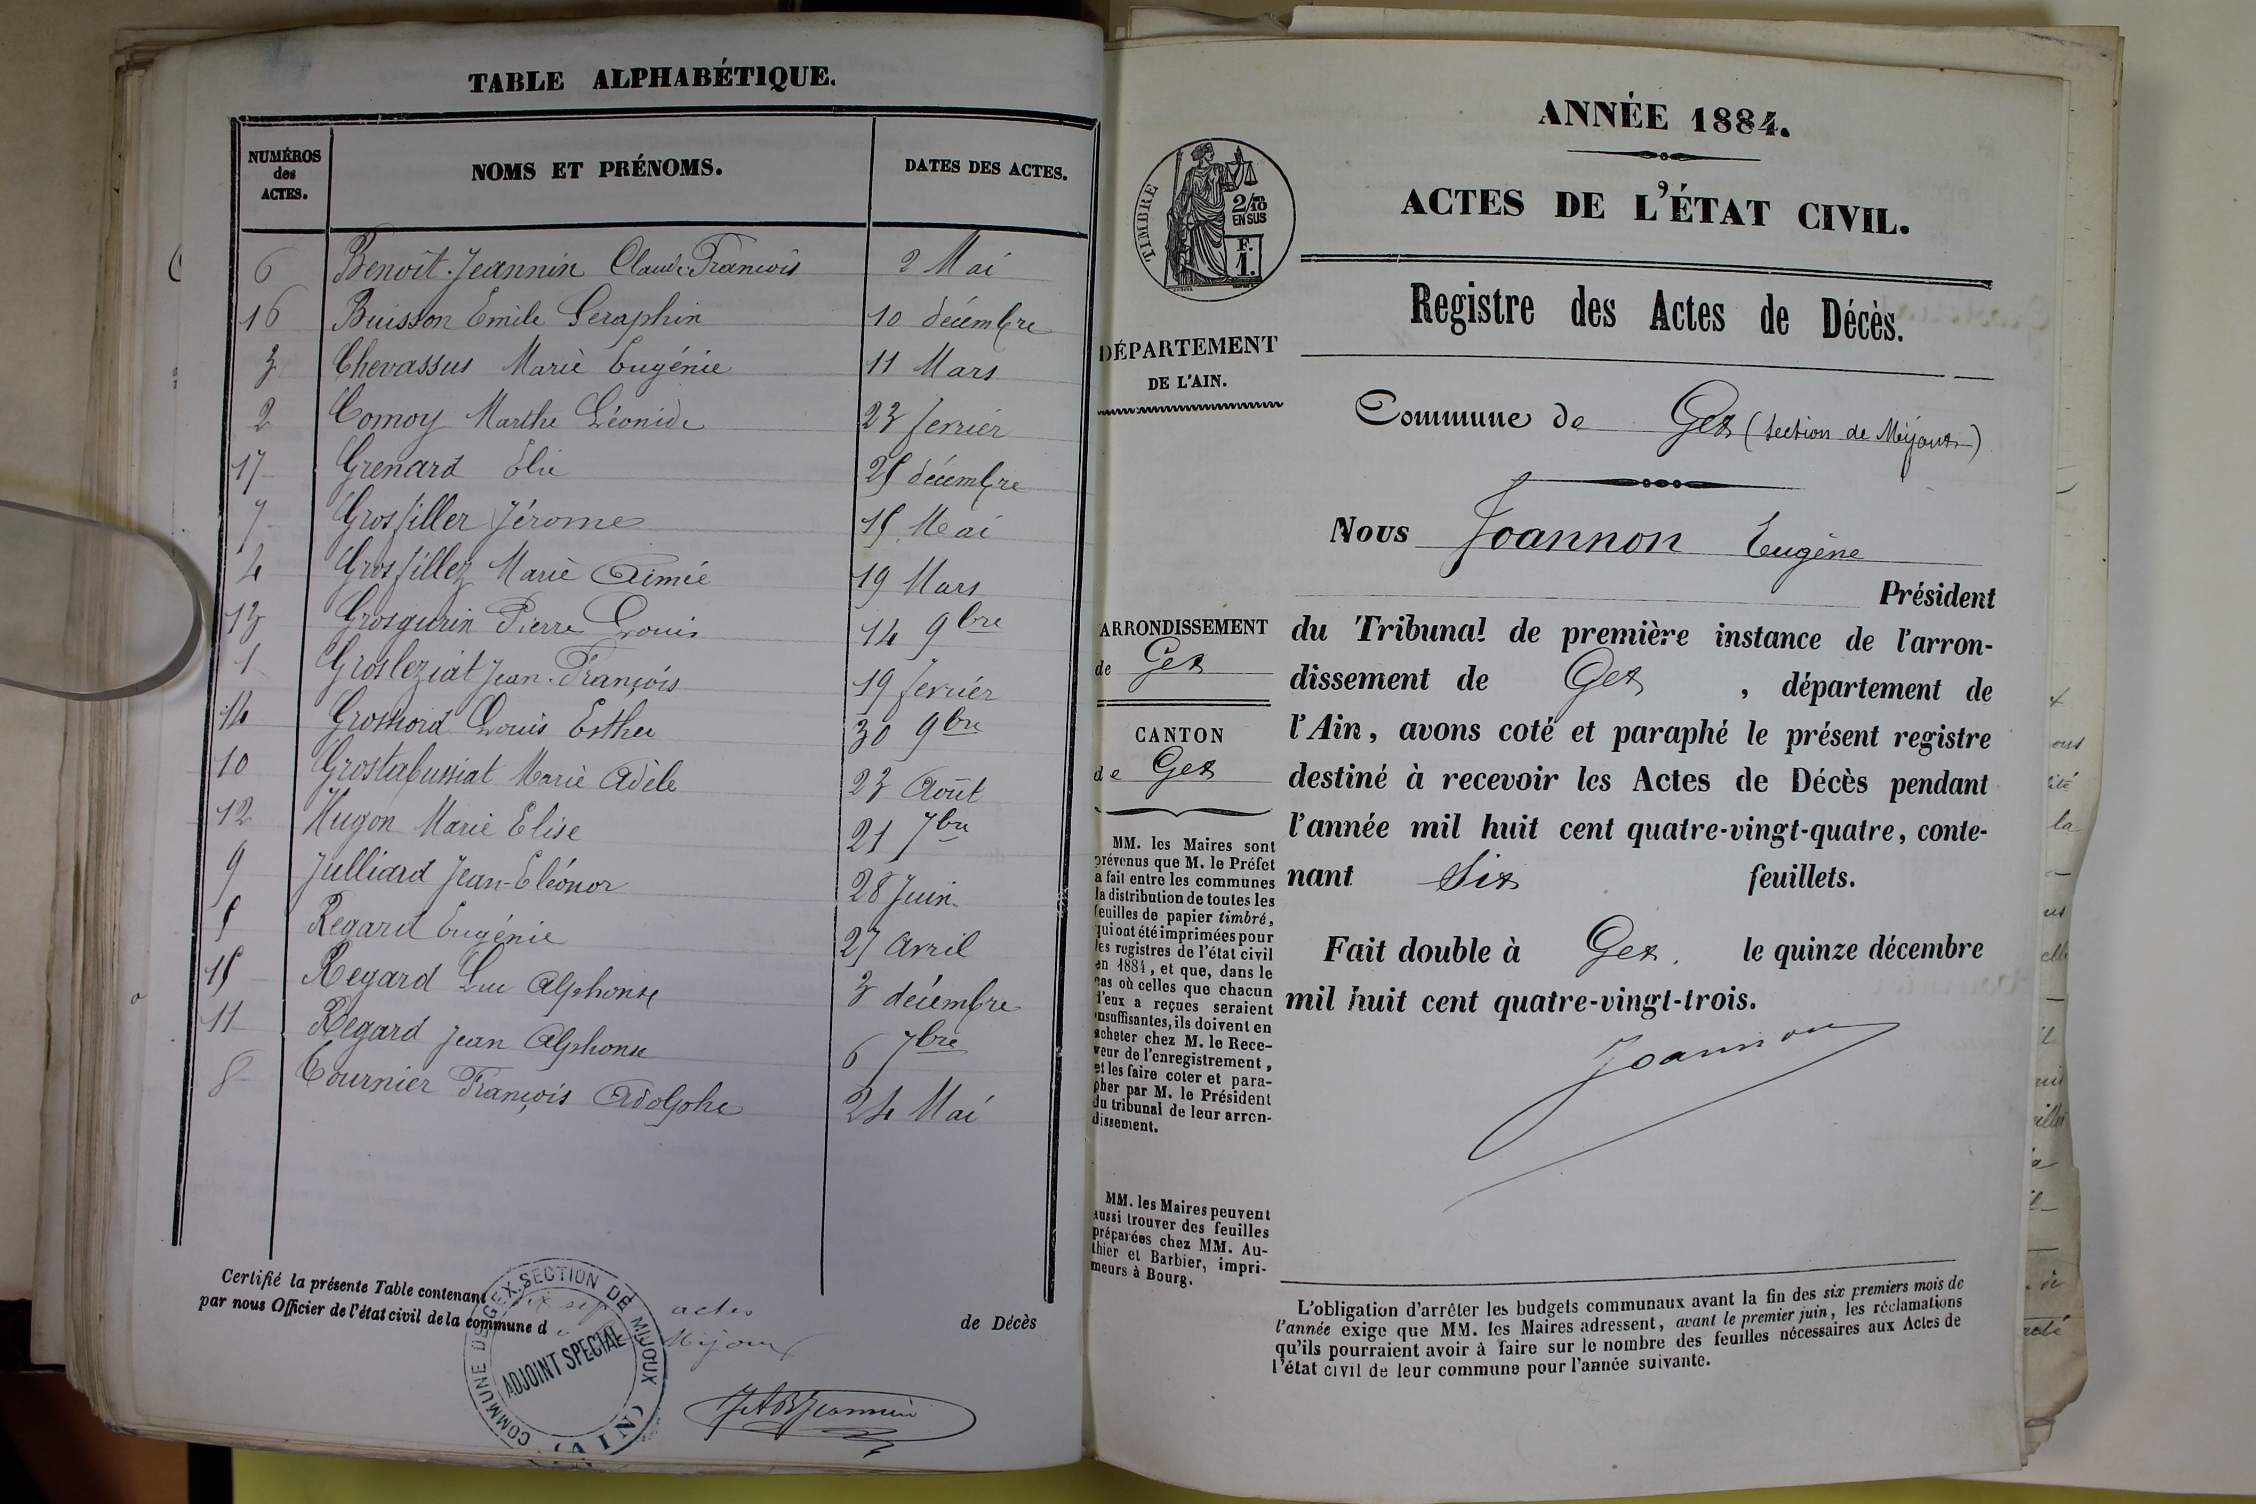 TABLE ALPHABÉTIQUE.
NUMÉROS des ACTES. NOMS ET PRÉNOMS. DATES DES ACTES.
6 Benoît-Jeannin Claude François 2 Mai
16 Buisson Emile Seraphin 10 décembre
3 Chevassus Marie Eugénie 11 Mars
2 Comoy Marthe Léonide 23 fevrier
17 Grenard Elie 25 décembre
7 Grosfiller Jérome 15 Mai
4 Grosfillez Marie Aimée 19 Mars
13 Grosgurin Pierre Louis 14 9bre
1 Grosleziat Jean-François 19 fevrier
14 Grossiord Louis Esther 30 9bre
10 Grostabussiat Marie Adèle 23 Août
12 Hugon Marie Elise 21 7bre
9 Julliard Jean-Eléonor 28 Juin
5 Regard Eugénie 27 Avril
15 Regard Luc Alphonse 3 décembre
11 Regard Jean Alphonse 6 7bre
8 Tournier François Adolphe 24 Mai
Certifié la présente Table contenant dix sept actes de Décès
par nous Officier de l'état civil de la commune d Mijoux
COMMUNE DE GEX. SECTION DE MIJOUX
ADJOINT SPECIAL
(AIN)
ANNÉE 1884.
ACTES DE L'ÉTAT CIVIL.
TIMBRE
2/10 EN SUS
F. 1.
Registre des Actes de Décès.
DÉPARTEMENT
DE L'AIN.
Commune de Gex (section de Mijoux)
Nous Joannon Eugène
Président
du Tribunal de première instance de l'arron-
dissement de Gex, département de
l'Ain, avons coté et paraphé le présent registre
destiné à recevoir les Actes de Décès pendant
l'année mil huit cent quatre-vingt-quatre, conte-
nant Six feuillets.
Fait double à Gex. le quinze décembre
mil huit cent quatre-vingt-trois.
Joannon
ARRONDISSEMENT
de Gex
CANTON
de Gex
MM. les Maires sont
prévenus que M. le Préfet
a fait entre les communes
la distribution de toutes les
feuilles de papier timbré,
qui ont été imprimées pour
les registres de l'état civil
en 1884, et que, dans le
cas où celles que chacun
d'eux a reçues seraient
insuffisantes, ils doivent en
acheter chez M. le Rece-
veur de l'enregistrement,
et les faire coter et para-
pher par M. le Président
du tribunal de leur arron-
dissement.
MM. les Maires peuvent
aussi trouver des feuilles
préparées chez MM. Au-
thier et Barbier, impri-
meurs à Bourg.
L'obligation d'arrêter les budgets communaux avant la fin des six premiers mois de
l'année exige que MM. les Maires adressent, avant le premier juin, les réclamations
qu'ils pourraient avoir à faire sur le nombre des feuilles nécessaires aux Actes de
l'état civil de leur commune pour l'année suivante.